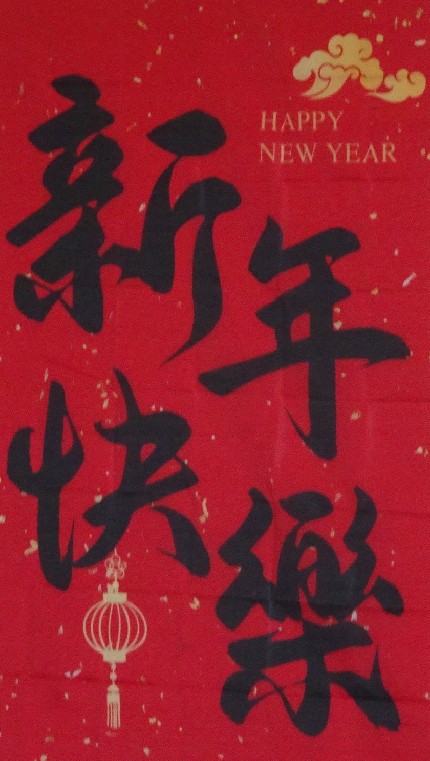 HAPPY
NEW YEAR
新年
快樂